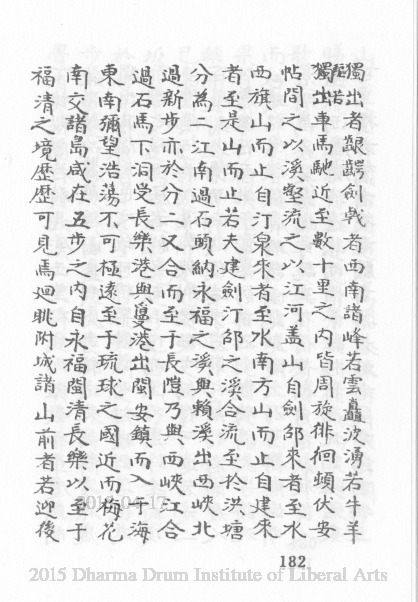 獨出者齦齶劍戟者西南諸峰若雲矗波湧若牛羊
獨出車馬馳近至數十里之內皆周旋徘徊頓伏安
帖間之以溪壑流之以江河盖山自劍邵來者至水
西旗山而止自汀泉來者至水南方山而止自建來
者至是山而止若夫建劍汀邵之溪合流至於洪塘
分為二江南過石頭納永福之溪與賴溪出西峽北
過新步亦於分二又合而至于長愷乃與西峽江合
過石馬下洞受長樂港與蕢港出閩安鎮而入于海
東南彌望浩蕩不可極遠至于琉球之國近而梅花
南交諸島咸在五步之內自永福閩清長樂以至于
福清之境歷歷可見焉迴眺附城諸山前者若迎後
182
2015-04-17
2015 Dharma Drum Institute of Liberal Arts